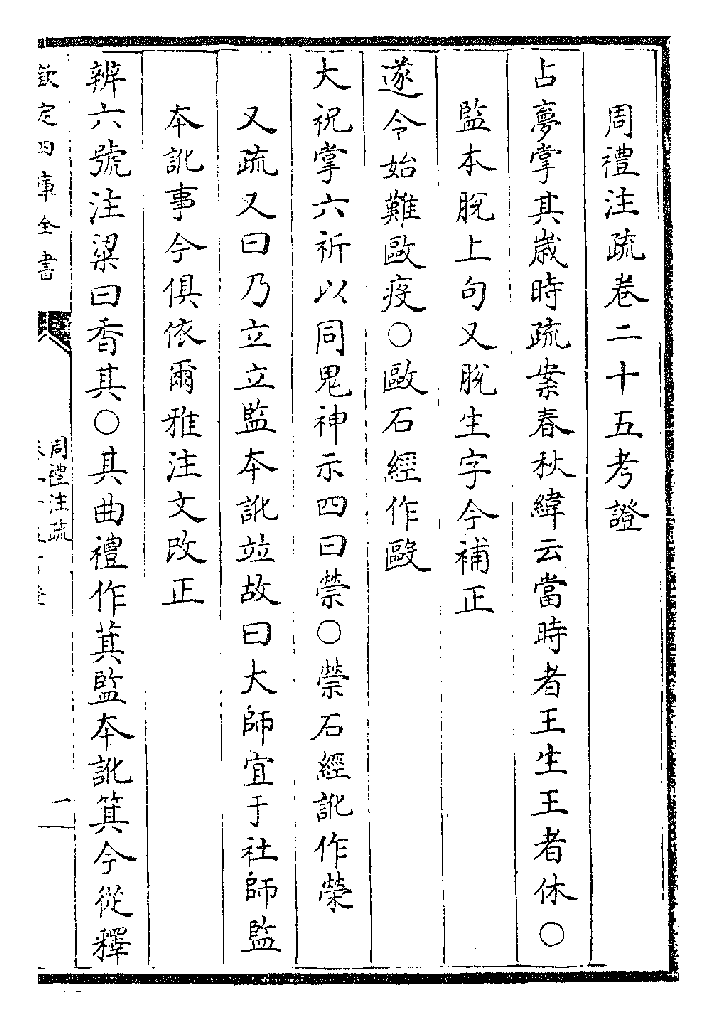 周禮注疏卷二十五考證
占夢掌其歲時疏案春秋緯云當時者王生王者休〇
監本脫上句又脫生字今補正
遂令始難歐疫〇歐石經作毆
大祝掌六祈以同鬼神示四曰禜〇禜石經訛作榮
又疏又曰乃立立監本訛竝故曰大師宜于社師監
本訛事今俱依爾雅注文改正
辨六號注粱曰香其〇其曲禮作萁監本訛箕今從釋
欽定四庫全書
周禮注疏
一